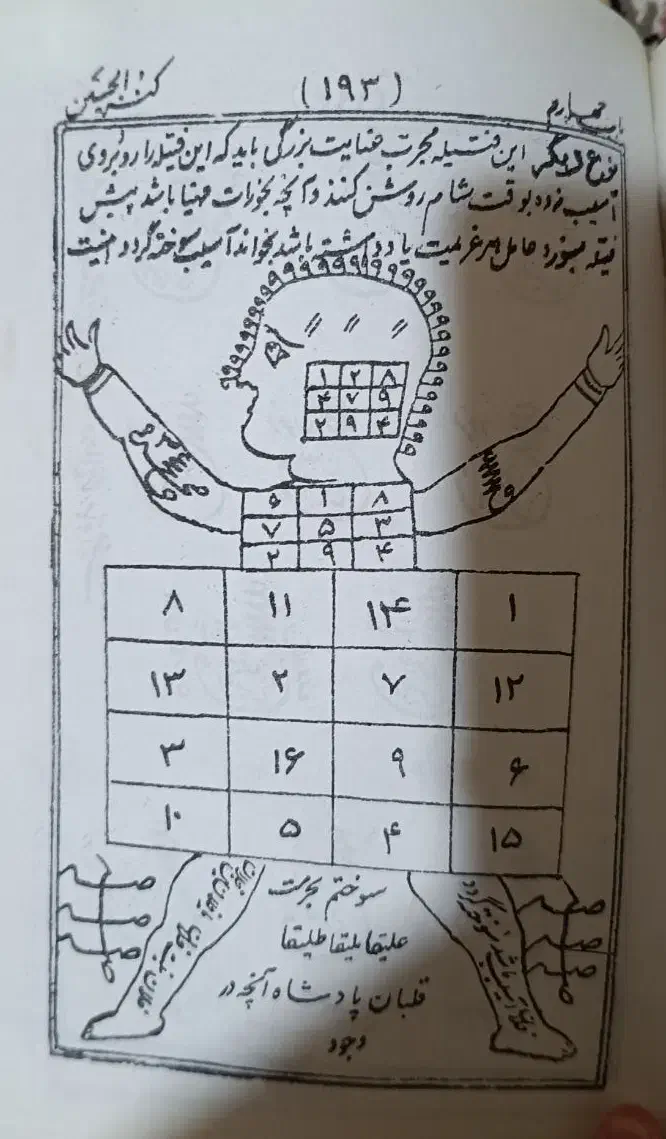 باب چهارم (۱۹۳) کنز الحسین
نوع دیگر این فتیله مجرب عنایت بزرگی باید که این فتیله را روبروی
آسیب زده بوقت شام روشن کنند و آنچه بخورات مهیا باشد پیش
فتیله بسوزد عامل هر عزیمت یاد داشته باشد بخواند آسیب سوخته گردد
۱ ۲ ۸
۴ ۷ ۹
۲ ۹ ۴
۶ ۱ ۸
۷ ۵ ۳
۲ ۹ ۴
۸ ۱۱ ۱۴ ۱
۱۳ ۲ ۷ ۱۲
۳ ۱۶ ۹ ۶
۱۰ ۵ ۴ ۱۵
سوختم بحرمت
علیقا بلیقا طلیقا
قلبان پادشاه آنچه در
وجود